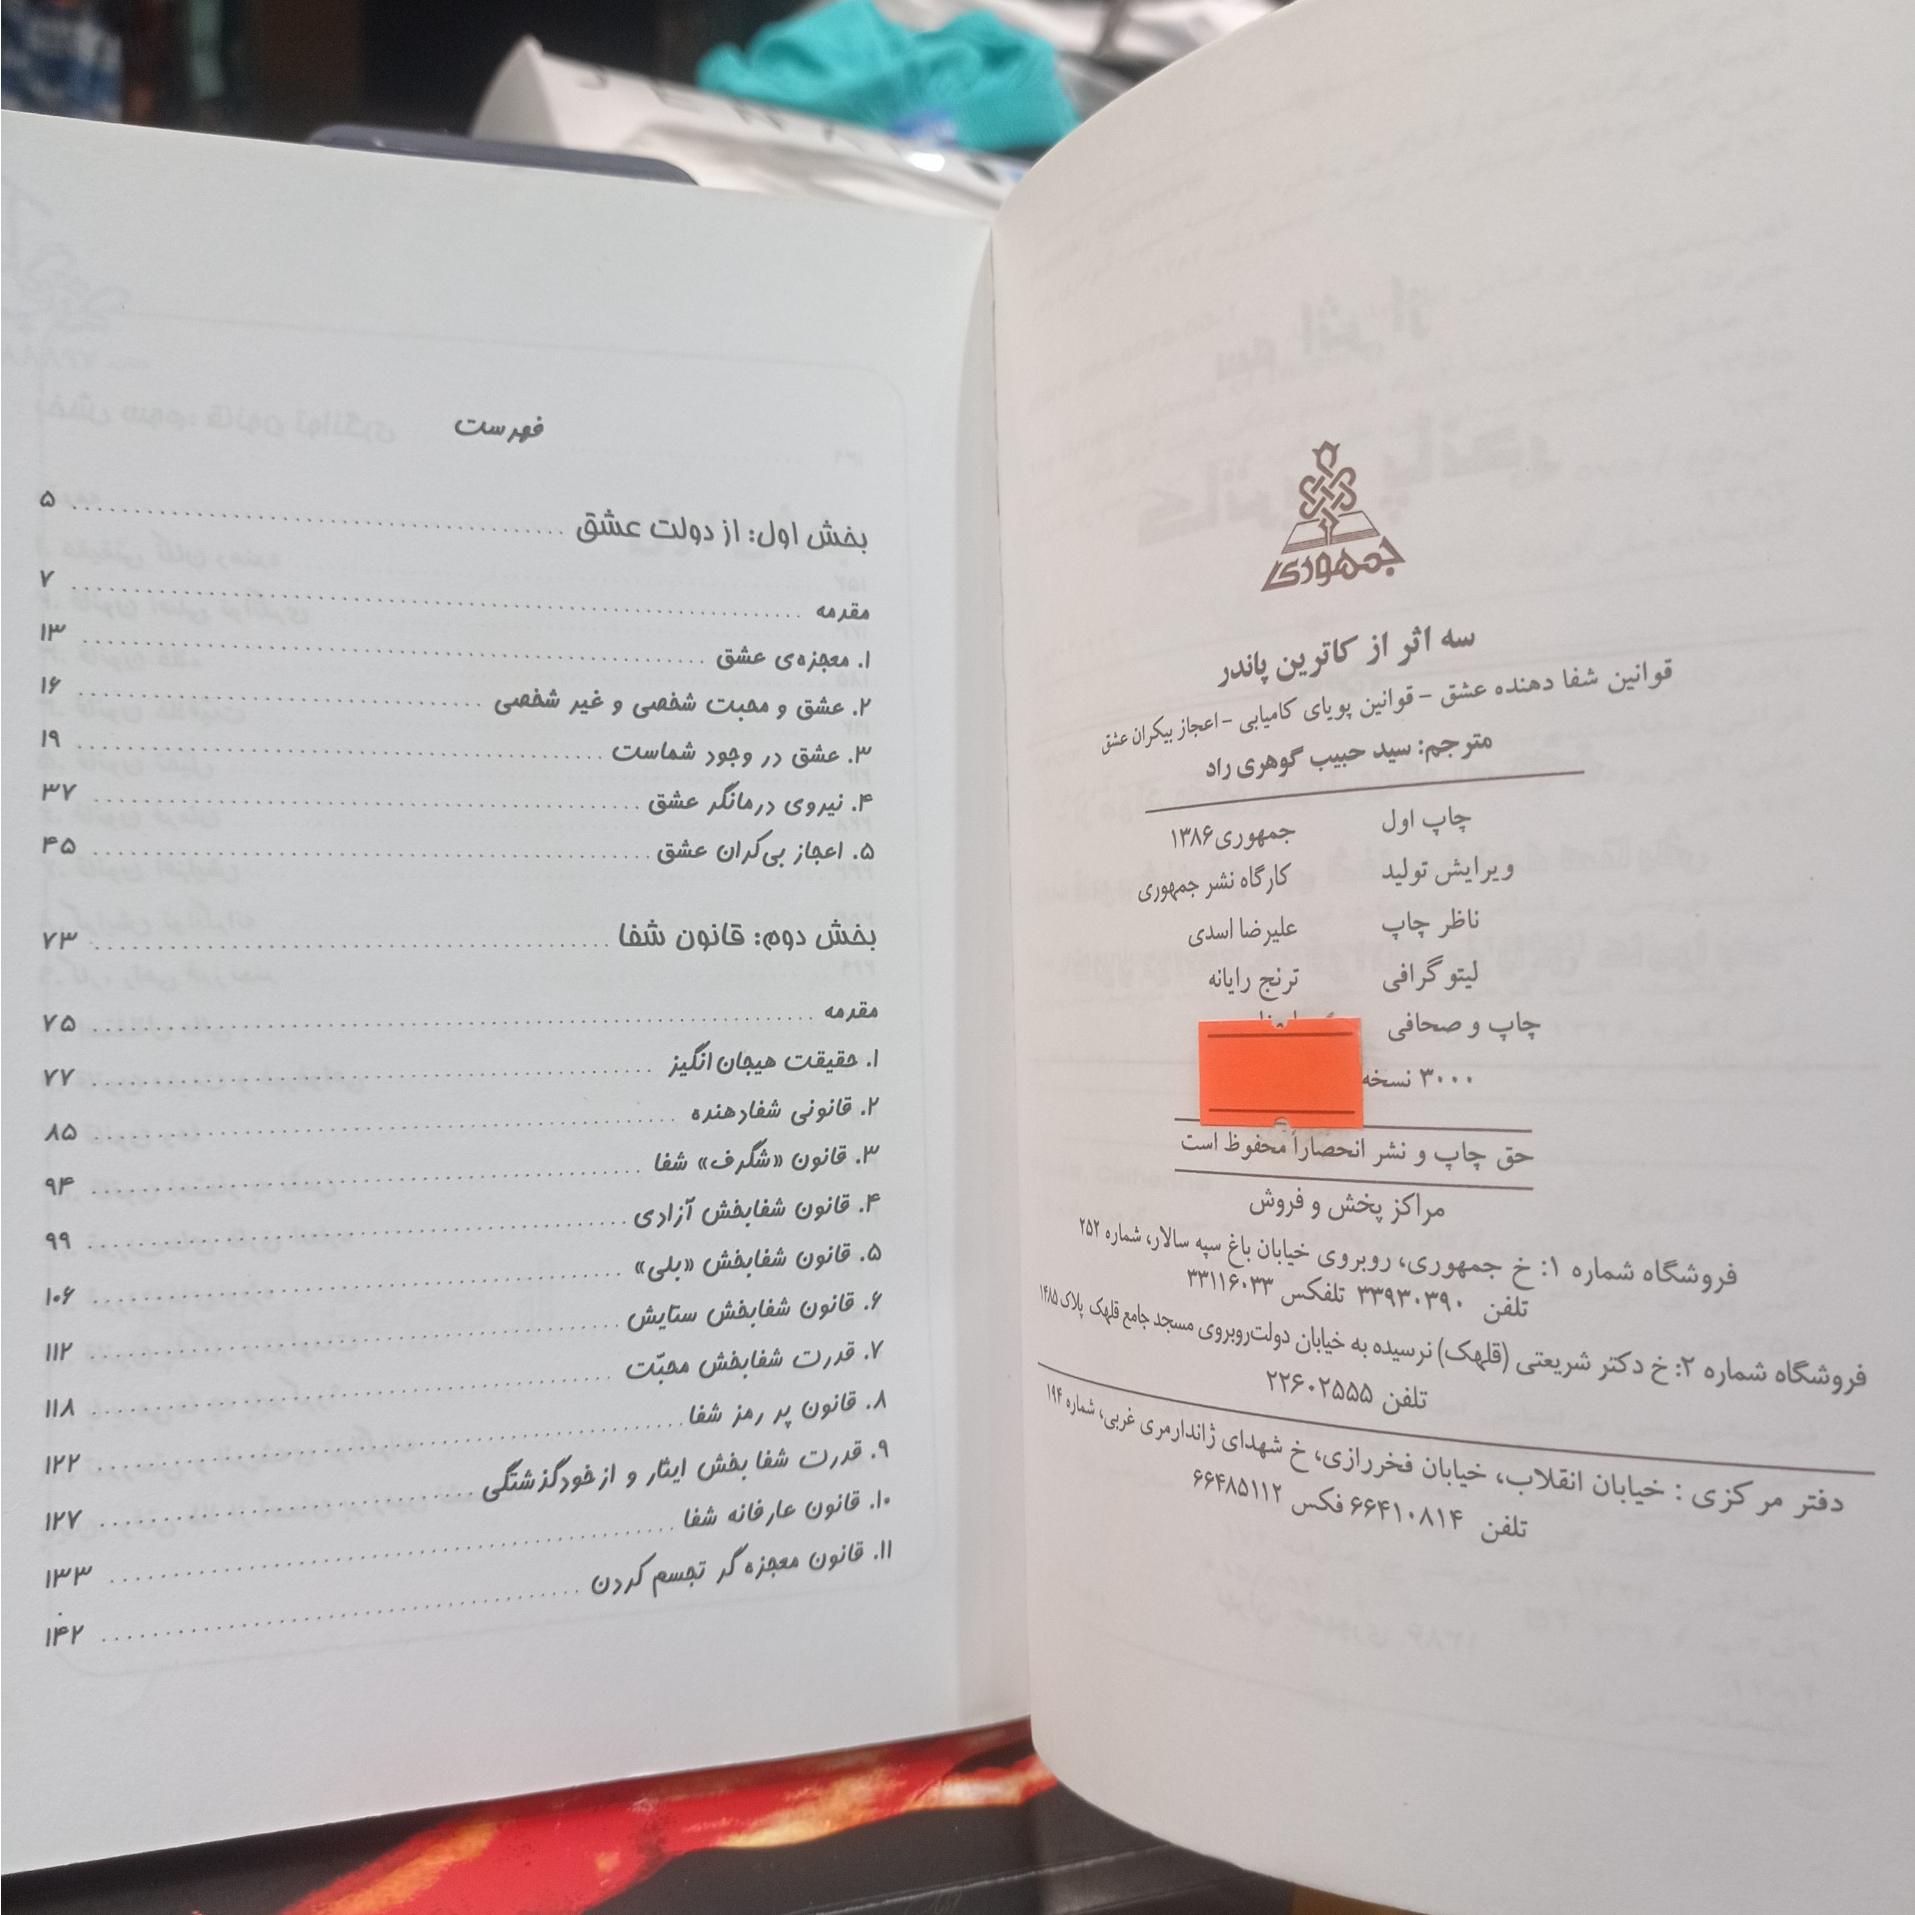 جمهوری
سه اثر از کاترین پاندر
قوانین شفا دهنده عشق - قوانین پویای کامیابی - اعجاز بیکران عشق
مترجم: سید حبیب گوهری راد
چاپ اول جمهوری ۱۳۸۶
ویرایش تولید کارگاه نشر جمهوری
ناظر چاپ علیرضا اسدی
لیتو گرافی ترنج رایانه
چاپ و صحافی
۳۰۰۰ نسخه
حق چاپ و نشر انحصاراً محفوظ است
مراکز پخش و فروش
فروشگاه شماره ۱: خ جمهوری، روبروی خیابان باغ سپه سالار، شماره ۲۵۲
تلفن ۳۳۹۳۰۳۹۰ تلفکس ۳۳۱۱۶۰۳۳
فروشگاه شماره ۲: خ دکتر شریعتی (قلهک) نرسیده به خیابان دولت‌روبروی مسجد جامع قلهک پلاک ۱۴۸۵
تلفن ۲۲۶۰۲۵۵۵
دفتر مرکزی : خیابان انقلاب، خیابان فخررازی، خ شهدای ژاندارمری غربی، شماره ۱۹۴
تلفن ۶۶۴۱۰۸۱۴ فکس ۶۶۴۸۵۱۱۲
فهرست
بخش اول: از دولت عشق ۵
مقدمه ۷
۱. معجزه‌ی عشق ۱۳
۲. عشق و محبت شخصی و غیر شخصی ۱۶
۳. عشق در وجود شماست ۱۹
۴. نیروی درمانگر عشق ۳۷
۵. اعجاز بی‌کران عشق ۴۵
بخش دوم: قانون شفا ۷۳
مقدمه ۷۵
۱. حقیقت هیجان‌انگیز ۷۷
۲. قانونی شفادهنده ۸۵
۳. قانون «شگرف» شفا ۹۴
۴. قانون شفابخش آزادی ۹۹
۵. قانون شفابخش «بلی» ۱۰۶
۶. قانون شفابخش ستایش ۱۱۲
۷. قدرت شفابخش محبّت ۱۱۸
۸. قانون پر رمز شفا ۱۲۲
۹. قدرت شفا بخش ایثار و از خود گذشتگی ۱۲۷
۱۰. قانون عارفانه شفا ۱۳۳
۱۱. قانون معجزه گر تجسم کردن ۱۴۲